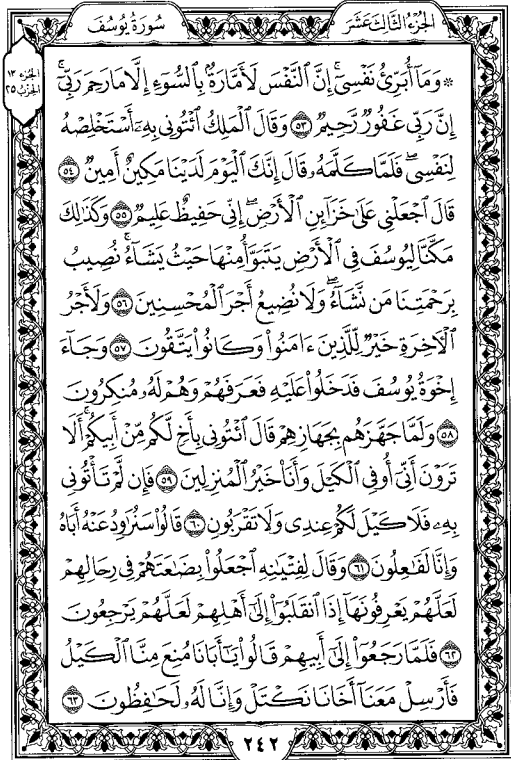 الجزء الثالث عشر
سورة يوسف
الجزء ١٣
الحزب ٢٥
۞ وَمَآ أُبَرِّئُ نَفۡسِيٓۚ إِنَّ ٱلنَّفۡسَ لَأَمَّارَةُۢ بِٱلسُّوٓءِ إِلَّا مَا رَحِمَ رَبِّيٓۚ
إِنَّ رَبِّي غَفُورٞ رَّحِيمٞ ٥٣ وَقَالَ ٱلۡمَلِكُ ٱئۡتُونِي بِهِۦٓ أَسۡتَخۡلِصۡهُ
لِنَفۡسِيۖ فَلَمَّا كَلَّمَهُۥ قَالَ إِنَّكَ ٱلۡيَوۡمَ لَدَيۡنَا مَكِينٌ أَمِينٞ ٥٤
قَالَ ٱجۡعَلۡنِي عَلَىٰ خَزَآئِنِ ٱلۡأَرۡضِۖ إِنِّي حَفِيظٌ عَلِيمٞ ٥٥ وَكَذَٰلِكَ
مَكَّنَّا لِيُوسُفَ فِي ٱلۡأَرۡضِ يَتَبَوَّأُ مِنۡهَا حَيۡثُ يَشَآءُۚ نُصِيبُ
بِرَحۡمَتِنَا مَن نَّشَآءُۖ وَلَا نُضِيعُ أَجۡرَ ٱلۡمُحۡسِنِينَ ٥٦ وَلَأَجۡرُ
ٱلۡأٓخِرَةِ خَيۡرٞ لِّلَّذِينَ ءَامَنُواْ وَكَانُواْ يَتَّقُونَ ٥٧ وَجَآءَ
إِخۡوَةُ يُوسُفَ فَدَخَلُواْ عَلَيۡهِ فَعَرَفَهُمۡ وَهُمۡ لَهُۥ مُنكِرُونَ
٥٨ وَلَمَّا جَهَّزَهُم بِجَهَازِهِمۡ قَالَ ٱئۡتُونِي بِأَخٖ لَّكُم مِّنۡ أَبِيكُمۡۚ أَلَا
تَرَوۡنَ أَنِّيٓ أُوفِي ٱلۡكَيۡلَ وَأَنَا۠ خَيۡرُ ٱلۡمُنزِلِينَ ٥٩ فَإِن لَّمۡ تَأۡتُونِي
بِهِۦ فَلَا كَيۡلَ لَكُمۡ عِندِي وَلَا تَقۡرَبُونِ ٦٠ قَالُواْ سَنُرَٰوِدُ عَنۡهُ أَبَاهُ
وَإِنَّا لَفَٰعِلُونَ ٦١ وَقَالَ لِفِتۡيَٰنِهِ ٱجۡعَلُواْ بِضَٰعَتَهُمۡ فِي رِحَالِهِمۡ
لَعَلَّهُمۡ يَعۡرِفُونَهَآ إِذَا ٱنقَلَبُوٓاْ إِلَىٰٓ أَهۡلِهِمۡ لَعَلَّهُمۡ يَرۡجِعُونَ
٦٢ فَلَمَّا رَجَعُوٓاْ إِلَىٰٓ أَبِيهِمۡ قَالُواْ يَٰٓأَبَانَا مُنِعَ مِنَّا ٱلۡكَيۡلُ
فَأَرۡسِلۡ مَعَنَآ أَخَانَا نَكۡتَلۡ وَإِنَّا لَهُۥ لَحَٰفِظُونَ ٦٣
٢٤٢